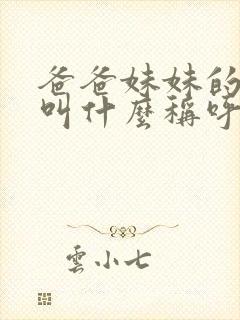 爸爸妹妹的
叫什麼稱呼
雲小七